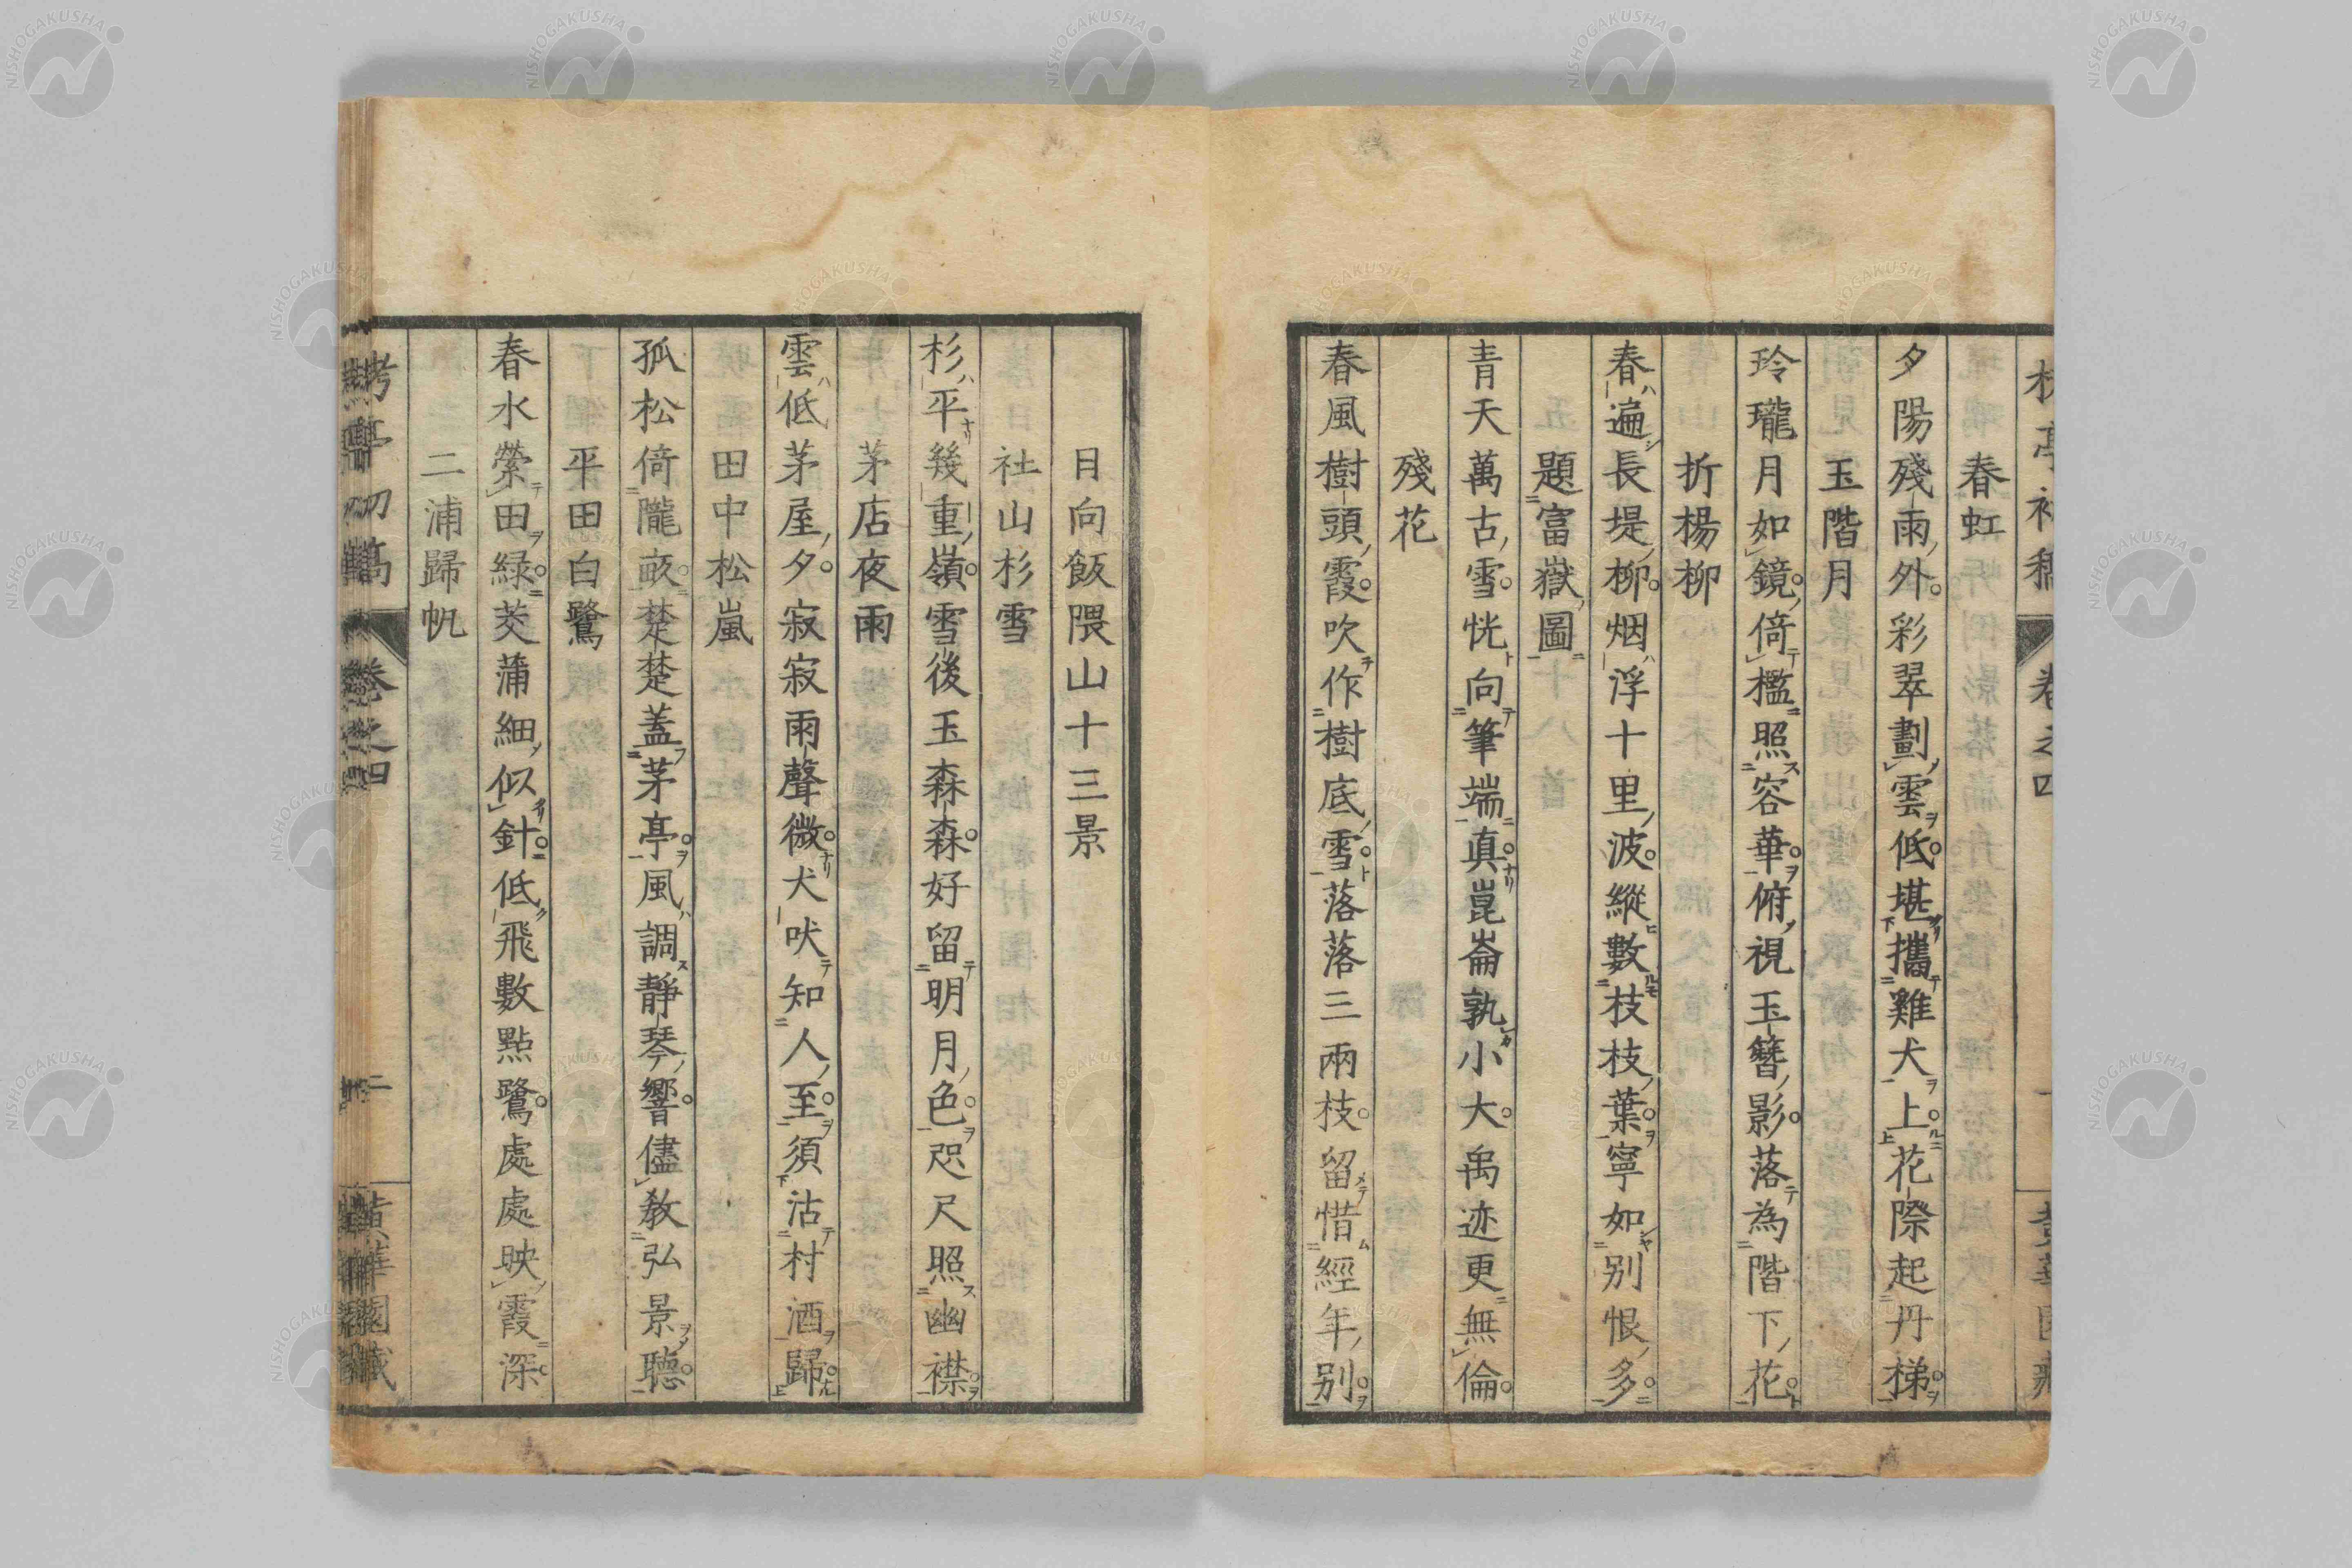 春虹
夕陽殘雨外彩翠劃雲低堪攜雞犬上花際起丹梯
玉階月
玲瓏月如鏡倚檻照容華俯視玉簪影落為階下花
折楊柳
春遍長堤柳烟浮十里波縱數枝枝葉寧如別恨多
題富嶽圖
青天萬古雪恍向筆端真崑崙孰小大禹迹更無倫
殘花
春風樹頭霞吹作樹底雪落落三兩枝留惜經年別
日向飯隈山十三景
社山杉雪
杉平幾重嶺雪後玉森森好留明月色咫尺照幽襟
茅店夜雨
雲低茅屋夕寂寂雨聲微犬吠知人至須沽村酒歸
田中松嵐
孤松倚隴畝楚楚蓋茅亭風調靜琴響儘教弘景聽
平田白鷺
春水縈田綠茭蒲細似針低飛數點鷺處處映霞深
二浦歸帆
卷之四 二
黃華園藏
NISHOGAKUSHA